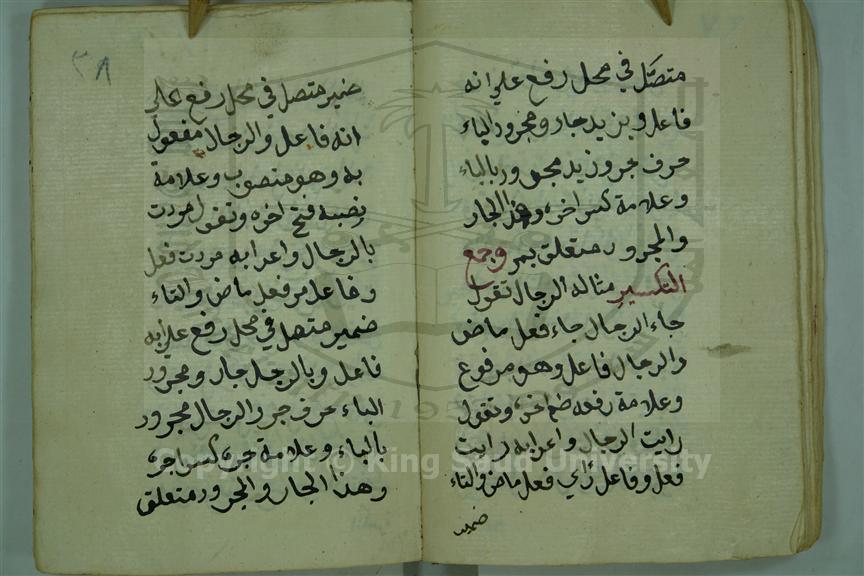 متصل في محل رفع على انه
فاعل وبزيد جار ومجرور الباء
حرف جر وزيد مجرور بالباء
وعلامة كسر اخره وهذا الجار
والمجرور متعلق بمر وجمع
التكسير مثاله الرجال تقول
جاء الرجال جاء فعل ماض
والرجال فاعل وهو مرفوع
وعلامة رفعه ضم اخره وتقول
رايت الرجال واعرابه رايت
فعل وفاعل رأي فعل ماض والتاء
ضمير
٣٨
ضمير متصل في محل رفع على
انه فاعل والرجال مفعول
به وهو منصوب وعلامة
نصبه فتح اخره وتقول مررت
بالرجال واعرابه مررت فعل
وفاعل مر فعل ماض والتاء
ضمير متصل في محل رفع على انه
فاعل وبالرجل جار ومجرور
الباء حرف جر والرجال مجرور
بالباء وعلامة جره كسر اخره
وهذا الجار والمجرور متعلق
Copyright © King Saud University
1957